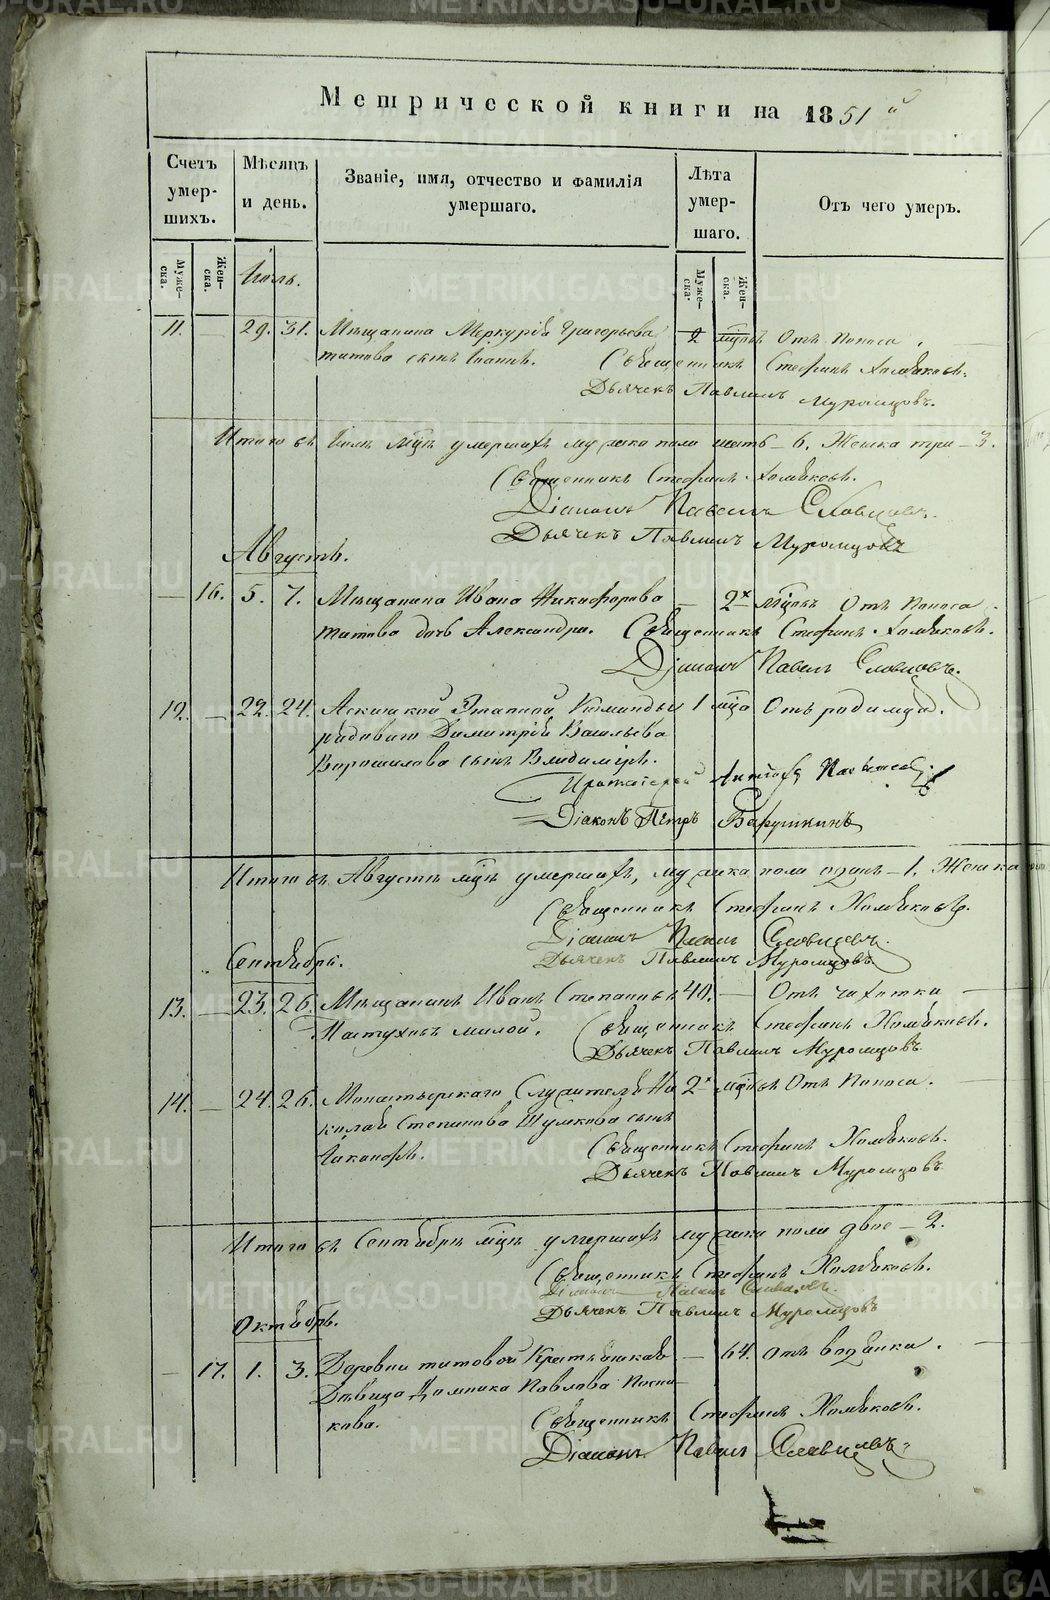 Метрической книги на 1851й
Счетъ умер-шихъ.
Мѣсяцъ и день.
Званіе, имя, отчество и фамилія умершаго.
Лѣта умер-шаго.
Отъ чего умеръ.
Муже-ска.
Жен-ска.
Іюль.
Муже-ска.
Жен-ска.
11. — 29. 31. Мѣщанина Меркурія Григорьева 2 мцовъ Отъ поноса.
Титова сынъ Іоаннъ. Священникъ Стефанъ Хомяковъ.
Дьячекъ Павлинъ Муромцовъ.
Итого въ Іюлѣ мцѣ умершихъ мужска пола шесть – 6. Женска три – 3.
Священникъ Стефанъ Хомяковъ.
Діаконъ Павелъ Словцовъ.
Дьячекъ Павлинъ Муромцовъ
Августъ.
— 16. 5. 7. Мѣщанина Ивана Никифорова — 2х мцовъ Отъ поноса.
Титова дочь Александра. Священникъ Стефанъ Хомяковъ.
Діаконъ Павелъ Словцовъ.
12. — 22. 24. Этапной Команды 1 мца Отъ родимца.
рядоваго Димитрія Васильева
Ворошилова сынъ Владиміръ.
Протоіерей
Діаконъ Петръ
Итого въ Августѣ мцѣ умершихъ, мужска пола одинъ – 1. Женска
Священникъ Стефанъ Хомяковъ.
Діаконъ Павелъ Словцовъ.
Дьячекъ Павлинъ Муромцовъ
Сентябрь.
13. — 23. 26. Мѣщанинъ Иванъ Степановъ 40. — Отъ чахотки
Пастуховъ милой. Священникъ Стефанъ Хомяковъ.
Дьячекъ Павлинъ Муромцовъ.
14. — 24. 26. Монастырскаго Служителя Ни 2х мцовъ Отъ поноса.
колая Степанова Шумкова сынъ
Никаноръ. Священникъ Стефанъ Хомяковъ.
Дьячекъ Павлинъ Муромцовъ
Итого въ Сентябрѣ мцѣ умершихъ мужска пола двое – 2.
Священникъ Стефанъ Хомяковъ.
Діаконъ Павелъ Словцовъ.
Дьячекъ Павлинъ Муромцовъ
Октябрь.
— 17. 1. 3. Деревни Титовой Крестьянская — 64. отъ водянки.
Дѣвица Домника Павлова
кова. Священникъ Стефанъ Хомяковъ.
Діаконъ Павелъ Словцовъ.
METRIKI.GASO-URAL.RU